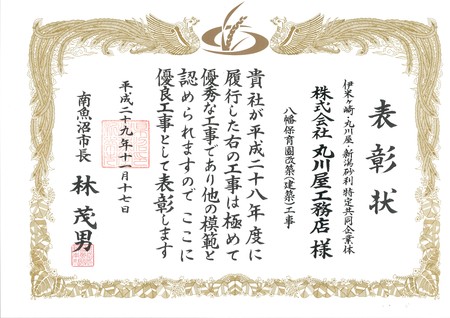 表彰状
伊米ヶ崎・丸川屋・新潟砂利 特定共同企業体
株式会社 丸川屋工務店 様
八幡保育園改築(建築)工事
貴社が平成二十八年度に
履行した右の工事は極めて
優秀な工事であり他の模範と
認められますので ここに
優良工事として表彰します
平成二十九年十一月十七日
南魚沼市長 林 茂男